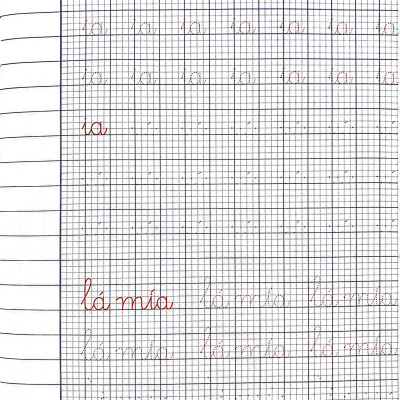 ia ia ia ia ia ia ia
ia ia ia ia ia ia ia
ia
lá mía lá mía lá mía
lá mía lá mía lá mía